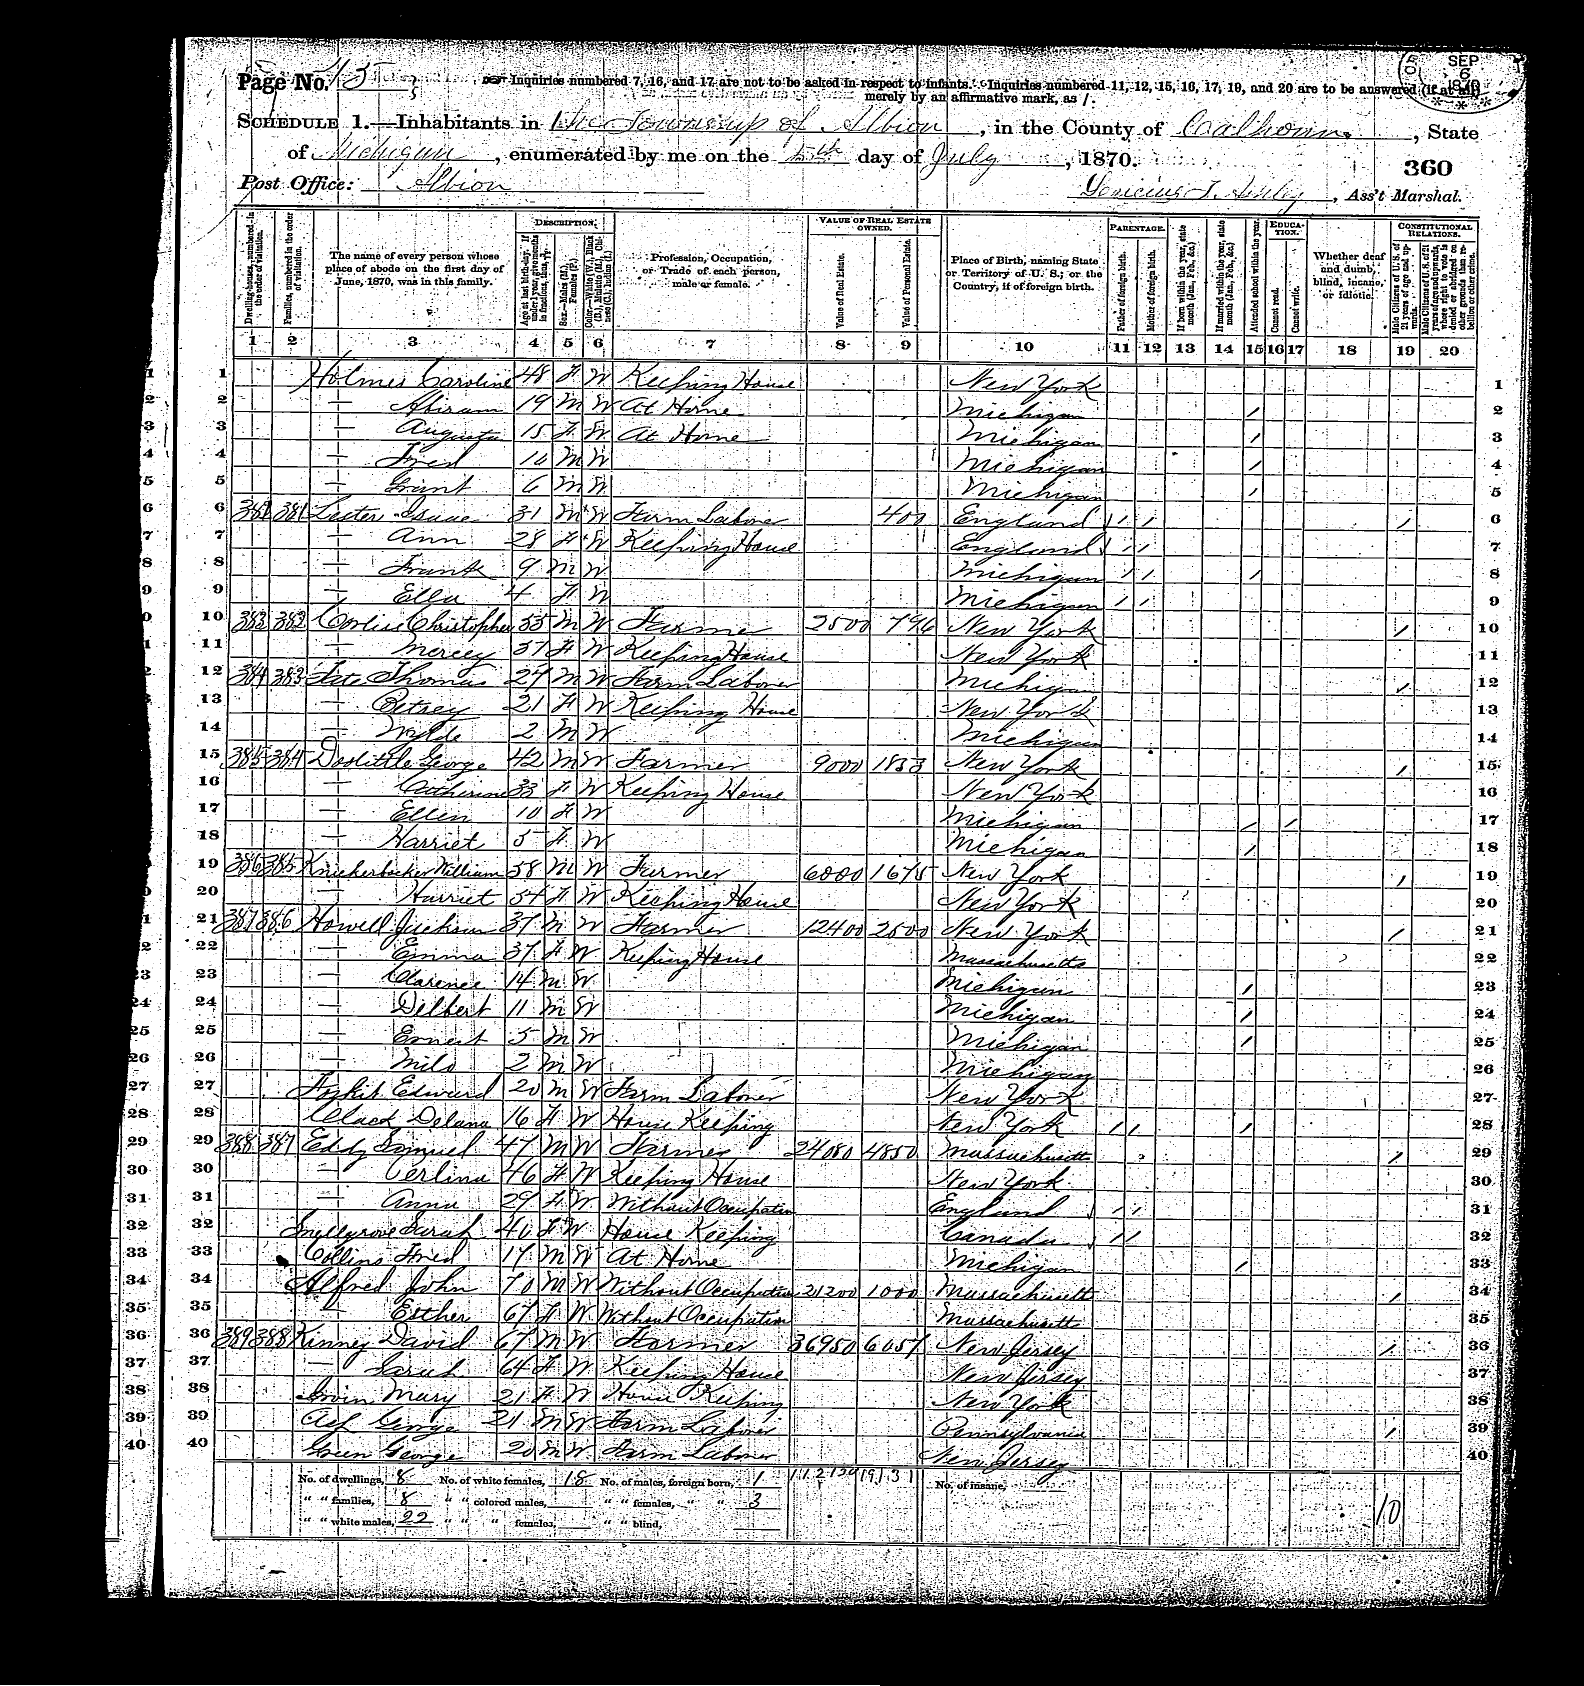 Page No. 45
☞ Inquiries numbered 7, 16, and 17 are not to be asked in respect to infants. Inquiries numbered 11, 12, 15, 16, 17, 19, and 20 are to be answered (if at all)
merely by an affirmative mark, as /.
SEP
6
1870
SCHEDULE 1.—Inhabitants in The Township of Albion, in the County of Calhoun, State
of Michigan, enumerated by me on the 5th day of July, 1870.
360
Post Office: Albion
, Ass't Marshal.
Dwelling-houses, numbered in the order of visitation.
Families, numbered in the order of visitation.
The name of every person whose place of abode on the first day of June, 1870, was in this family.
DESCRIPTION.
Age at last birth-day. If under 1 year, give months in fractions, thus, 3/12
Sex.—Males (M.), Females (F.)
Color.—White (W.), Black (B.), Mulatto (M.), Chinese (C.), Indian (I.)
Profession, Occupation, or Trade of each person, male or female.
VALUE OF REAL ESTATE OWNED.
Value of Real Estate.
Value of Personal Estate.
Place of Birth, naming State or Territory of U. S.; or the Country, if of foreign birth.
PARENTAGE.
Father of foreign birth.
Mother of foreign birth.
If born within the year, state month (Jan., Feb., &c.)
If married within the year, state month (Jan., Feb., &c.)
Attended school within the year.
EDUCATION.
Cannot read.
Cannot write.
Whether deaf and dumb, blind, insane, or idiotic.
CONSTITUTIONAL RELATIONS.
Male Citizens of U. S. of 21 years of age and upwards.
Male Citizens of U. S. of 21 years of age and upwards, where right to vote is denied or abridged on other grounds than rebellion or other crime.
1 2 3 4 5 6 7 8 9 10 11 12 13 14 15 16 17 18 19 20
1 Holmes Caroline 48 F W Keeping House New York 1
2 — Abiram 19 M W At Home Michigan / 2
3 — Augusta 15 F W At Home Michigan / 3
4 — Fred 10 M W Michigan / 4
5 — Grant 6 M W Michigan / 5
6 382 381 Lester Isaac 31 M W Farm Laborer 400 England / / / 6
7 — Ann 28 F W Keeping House England / / 7
8 — Frank 9 M W Michigan / / / 8
9 — Ella 4 F W Michigan / / 9
10 383 382 Christopher 55 M W Farmer 2500 796 New York / 10
11 — Mercey 57 F W Keeping House New York 11
12 384 383 Thomas 24 M W Farm Laborer Michigan / 12
13 — Betsey 21 F W Keeping House New York 13
14 — 2 M W Michigan 14
15 385 384 Doolittle George 42 M W Farmer 9000 1833 New York / 15
16 — Catherine 33 F W Keeping House New York 16
17 — Ellen 10 F W Michigan / / 17
18 — Harriet 5 F W Michigan / 18
19 386 385 Knickerbocker William 58 M W Farmer 6000 1675 New York / 19
20 — Harriet 54 F W Keeping House New York 20
21 387 386 Howell Jackson 37 M W Farmer 12400 2500 New York / 21
22 — Emma 37 F W Keeping House Massachusetts 22
23 — Clarence 14 M W Michigan / 23
24 — Delbert 11 M W Michigan / 24
25 — Ernest 5 M W Michigan / 25
26 — Milo 2 M W Michigan 26
27 Edward 20 M W Farm Laborer New York 27
28 Delana 16 F W House Keeping New York / / / 28
29 388 387 Eddy Samuel 47 M W Farmer 24080 4850 Massachusetts / 29
30 — 46 F W Keeping House New York 30
31 — Anna 29 F W Without Occupation England / / 31
32 Snellgrove Sarah 40 F W House Keeping Canada / / 32
33 Collins Fred 17 M W At Home Michigan / 33
34 Alfred John 70 M W Without Occupation 21200 1000 Massachusetts / 34
35 — Esther 67 F W Without Occupation Massachusetts 35
36 389 388 Kinney David 67 M W Farmer 36950 6057 New Jersey / 36
37 — Sarah 64 F W Keeping House New Jersey 37
38 Irvin Mary 21 F W House Keeping New York 38
39 George 21 M W Farm Laborer Pennsylvania / 39
40 Green George 20 M W Farm Laborer New Jersey 40
No. of dwellings, 8 No. of white females, 18 No. of males, foreign born, 1 112130 19131 No. of insane,
" " families, 8 " " colored males, " " females, " " 3
" " white males, 22 " " " females, " " blind, 10